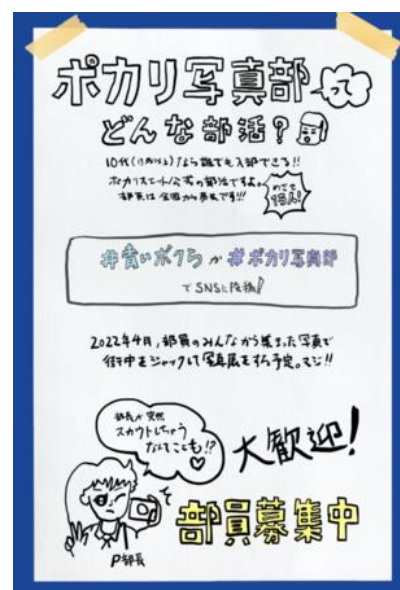 ポカリ写真部って
どんな部活?
10代(13歳以上)なら誰でも入部できる!!
ポカリスエット公式の部活ですよ。
部員は全国から募集です!!!
めざせ
#青いボクら か #ポカリ写真部
でSNSに投稿!
2022年4月,部員のみんなから集まった写真で
街中をジャックして写真展をする予定。マジ!!
部長が突然
スカウトしちゃう
なんてことも!?
大歓迎!
部員募集中
P部長